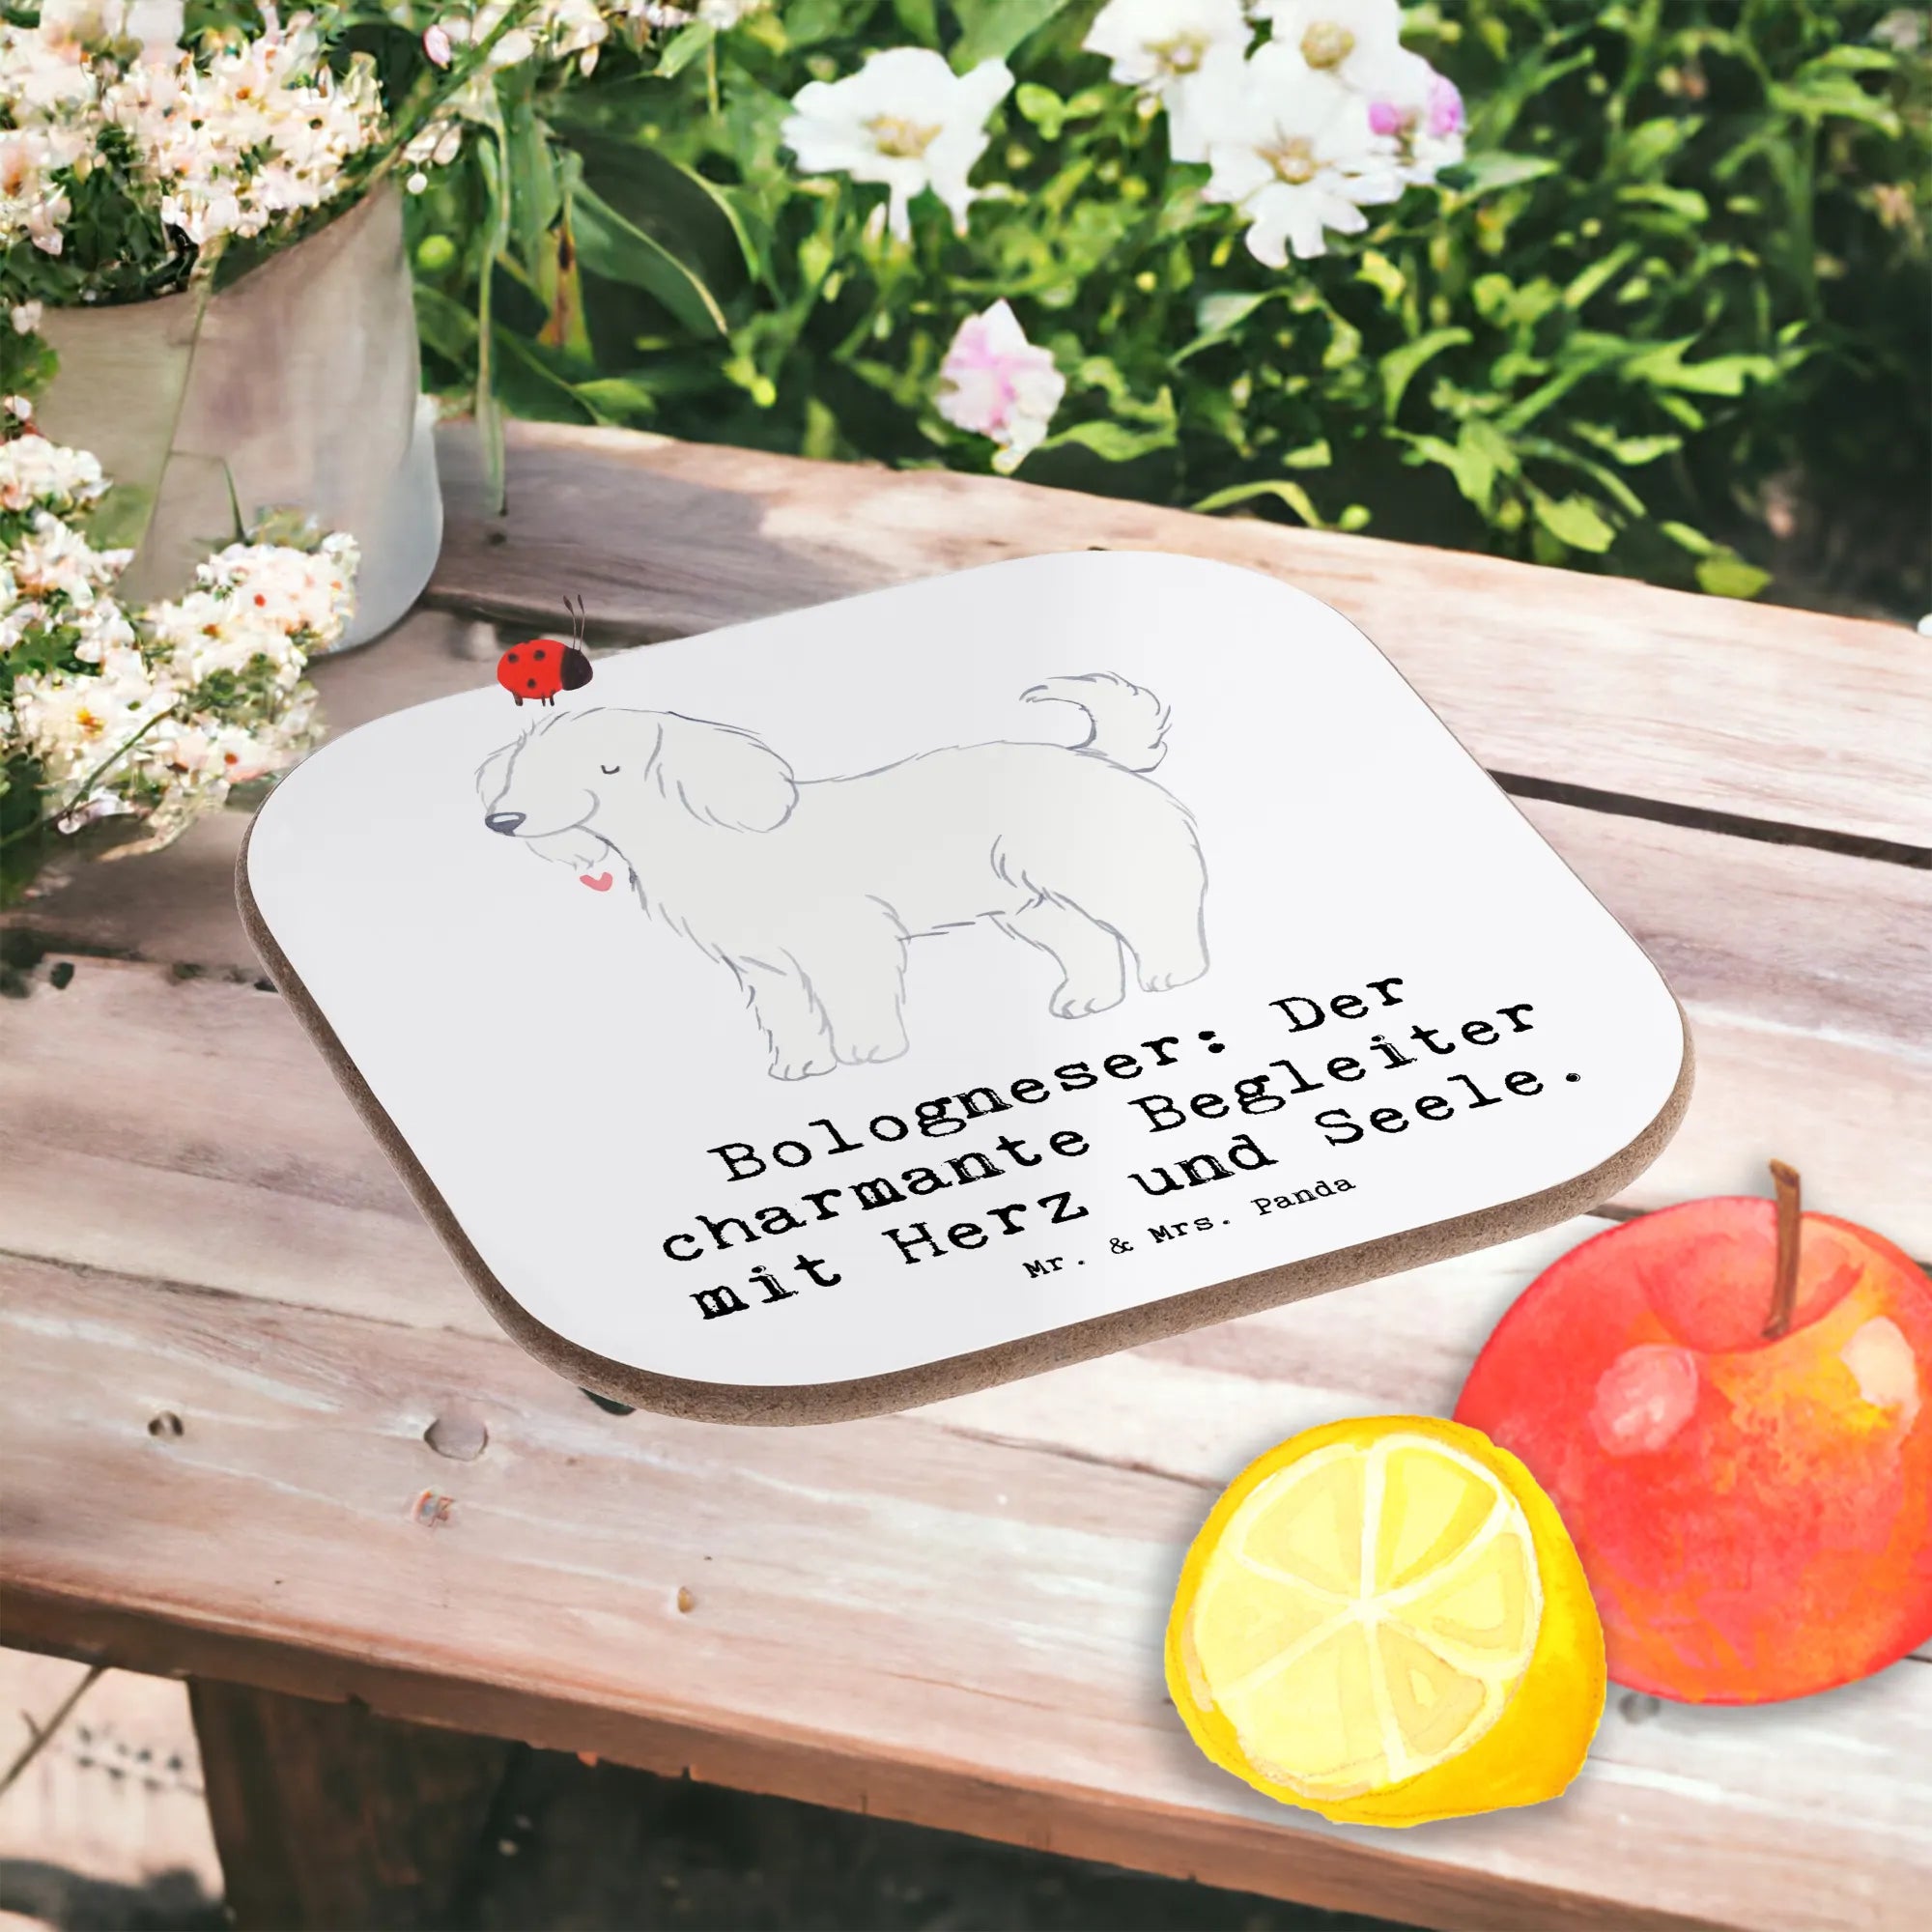 Bologneser: Der
charmante Begleiter
mit Herz und Seele.
Mr. & Mrs. Panda